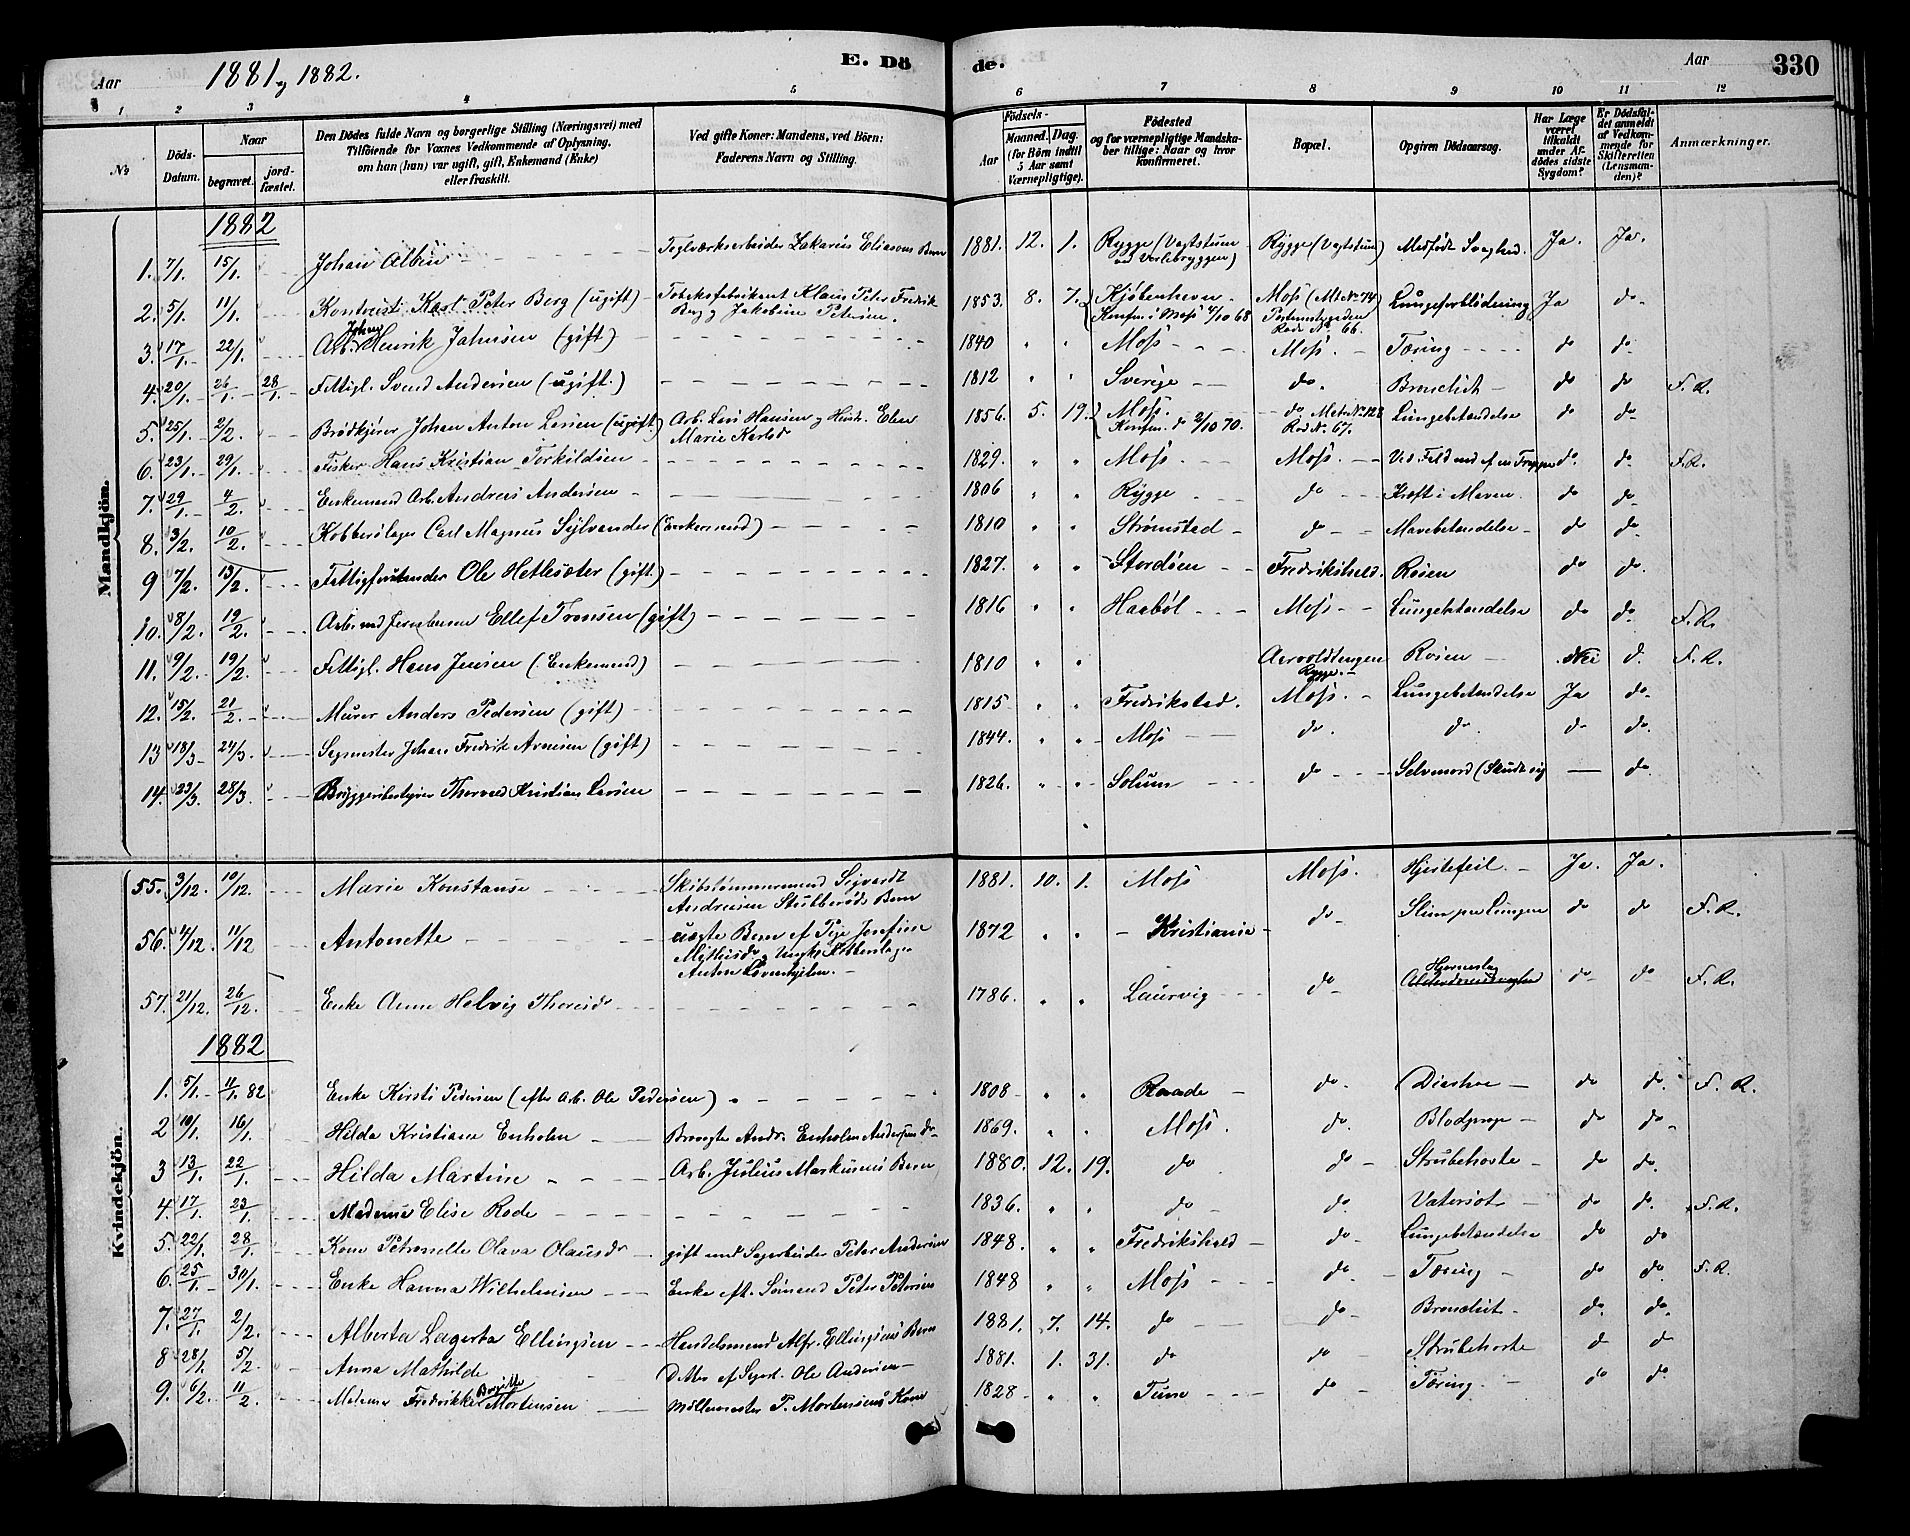 Aar 1881 og 1882. E. Dö de. Aar 330
1 2 3 4 5 6 7 8 9 10 11 12
№ Döds-Datum. Naar begravet. jordfæstet. Den Dödes fulde Navn og borgerlige Stilling (Næringsvei) med Tilföiende for Voxnes Vedkommende af Oplysning, om han (hun) var ugift, gift, Enkemand (Enke) eller fraskilt. Ved gifte Koner: Mandens, ved Börn: Faderens Navn og Stilling. Födsels- Aar Maaned. Dag. (for Börn indtil 5 Aar samt Værnepligtige). Födested og for værnepligtige Mandskaber tillige: Naar og hvor konfirmeret. Bopæl. Opgiven Dödsaarsag. Har Læge været tilkaldt under Afdödes sidste Sygdom? Er Dödsfaldet anmeldt af Vedkommende for Skifteretten (Lensmanden)? Anmærkninger.
Mandkjön.
1882
1. 7/1. 15/1. Johan Albin Teglværksarbeider Zakarias Eliasens Barn 1881. 12. 1. Rygge (Vogtstuen ved Værlebryggen) Rygge (Vogtstuen) Medfødt Svaghed. Ja. Ja.
2. 5/1. 11/1. Kontorist Karl Peter Berg (ugift) Tobaksfabrikant Klaus Peter Fredrik Berg og Jakobine Petersen. 1853. 8. 7. Kjøbenhavn. Konfm. i Moss 4/10 68 Moss (Mt No 74) Rode No 66. Lungeforblödning Ja do
3. 17/1 22/1. Arb. Johan Henrik Jahnsen (gift) 1840 " " Moss Moss. Tæring do do
4. 20/1 26/1 28/1 Fattigl. Svend Andersen (ugift.) 1812 " " Sverige do. Bronchit do do F. R.
5. 25/1. 2/2. Brødkjører Johan Anton Larsen (ugift) Arb. Lars Hansen og Hust. Elen Marie Karlsd 1856. 5. 19. Moss. Konfm. do 2/10 70. do Matr. No. 128 Rod No. 67. Lungebetændelse do do
6. 23/1. 29/1. Fisker Hans Kristian Torkildsen 1829. " " Moss. Moss. Ved Fald ned af en Trappe do. do. F. R.
7. 29/1. 4/2. Enkemand Arb. Andreas Andersen 1806 " " Rygge do Kræft i Maven. do do
8. 3/2. 10/2. Kobberslager Carl Magnus Sylvander (Enkemand) 1810 " " Strømstad do Mavebetændelse do do
9 7/2. 13/2. Fattigforstander Ole Hetlesæter (gift.) 1827. " " Stordøen Fredrikshald. Rosen do do.
10. 8/2. 19/2. Arb. ved Jernbanen Ellef Tronsen (gift) 1816 " " Haabøl Moss Lungebetændelse do do F. R.
11. 9/2. 19/2. Fattigl. Hans Jensen (Enkemand) 1810 " " Aarvoldtangen Rygge. Rosen Nei d. F. R.
12. 15/2. 21/2. Murer Anders Pedersen (gift) 1815 " " Fredrikstad. Moss. Lungebetændelse Ja do
13 18/3 24/3. Sagmester Johan Fredrik Arnesen (gift) 1844. " " Moss do. do. do do.
14. 23/3. 28/3. Bryggeribestyrer Thorvald Kristian Larsen 1826. " " Solum do Selvmord (Skudt sig — do.
Kvindekjön.
55. 3/12. 10/12. Marie Konstanse Skibstømmermand Sigvardt Andreasen Stubberøds Barn 1881. 10. 1. Moss Moss. Hjertefeil. Ja. Ja.
56. 4/12. 11/12 Antonette uægte Barn af Pige Josefine Mathisd. og Ungk. Anton Løvenhjelm. 1872 " " Kristiania do Slim paa Lungen do do F. R.
57. 21/12. 26/12. Enke Anne Helvig Thoresd 1786. " " Laurvig do Hjerneslag do do F. R.
1882
1. 5/1. 11/1. 82 Enke Kirsti Pedersen (efter Arb. Ole Pedersen) 1808 " " Raade do. Diarrhoe do do. F. R.
2 10/1. 16/1. Hilda Kristiane Enholm Andr. Enholm Andersens d. 1869. " " Moss. do. do do
3 13/1. 22/1. Hilda Martine Arb. Julius Markusens Barn 1880. 12. 19. do do Strubehoste do do
4. 17/1. 23/1. Madame Elise Rode 1836. " " do do. Vatersot do do. F. R.
5. 22/1. 28/1. Kone Petronelle Olava Olausd. gift med Sagarbeider Peter Andersen 1848. " " Fredrikshald do Lungebetændelse do do
6. 25/1. 30/1. Enke Hanna Wilhelmsen Enke eft. Sømand Peter Petersen 1848 " " Moss do Tæring do do. F. R.
7. 27/1. 2/2. Alberta Lagerta Ellingsen Handelsmand Alfr. Ellingsens Barn 1881. 7. 14. do do Bronchit do. do.
8 28/1 5/2. Anna Mathilde Datter af Ole Andersen 1881. 1. 31. do do Strubehoste d do
9. 6/2. 11/2. Madame Fredrikke Mortensen Møllemester P. Mortensens Kone 1828 " " Tune do Tæring. do do.